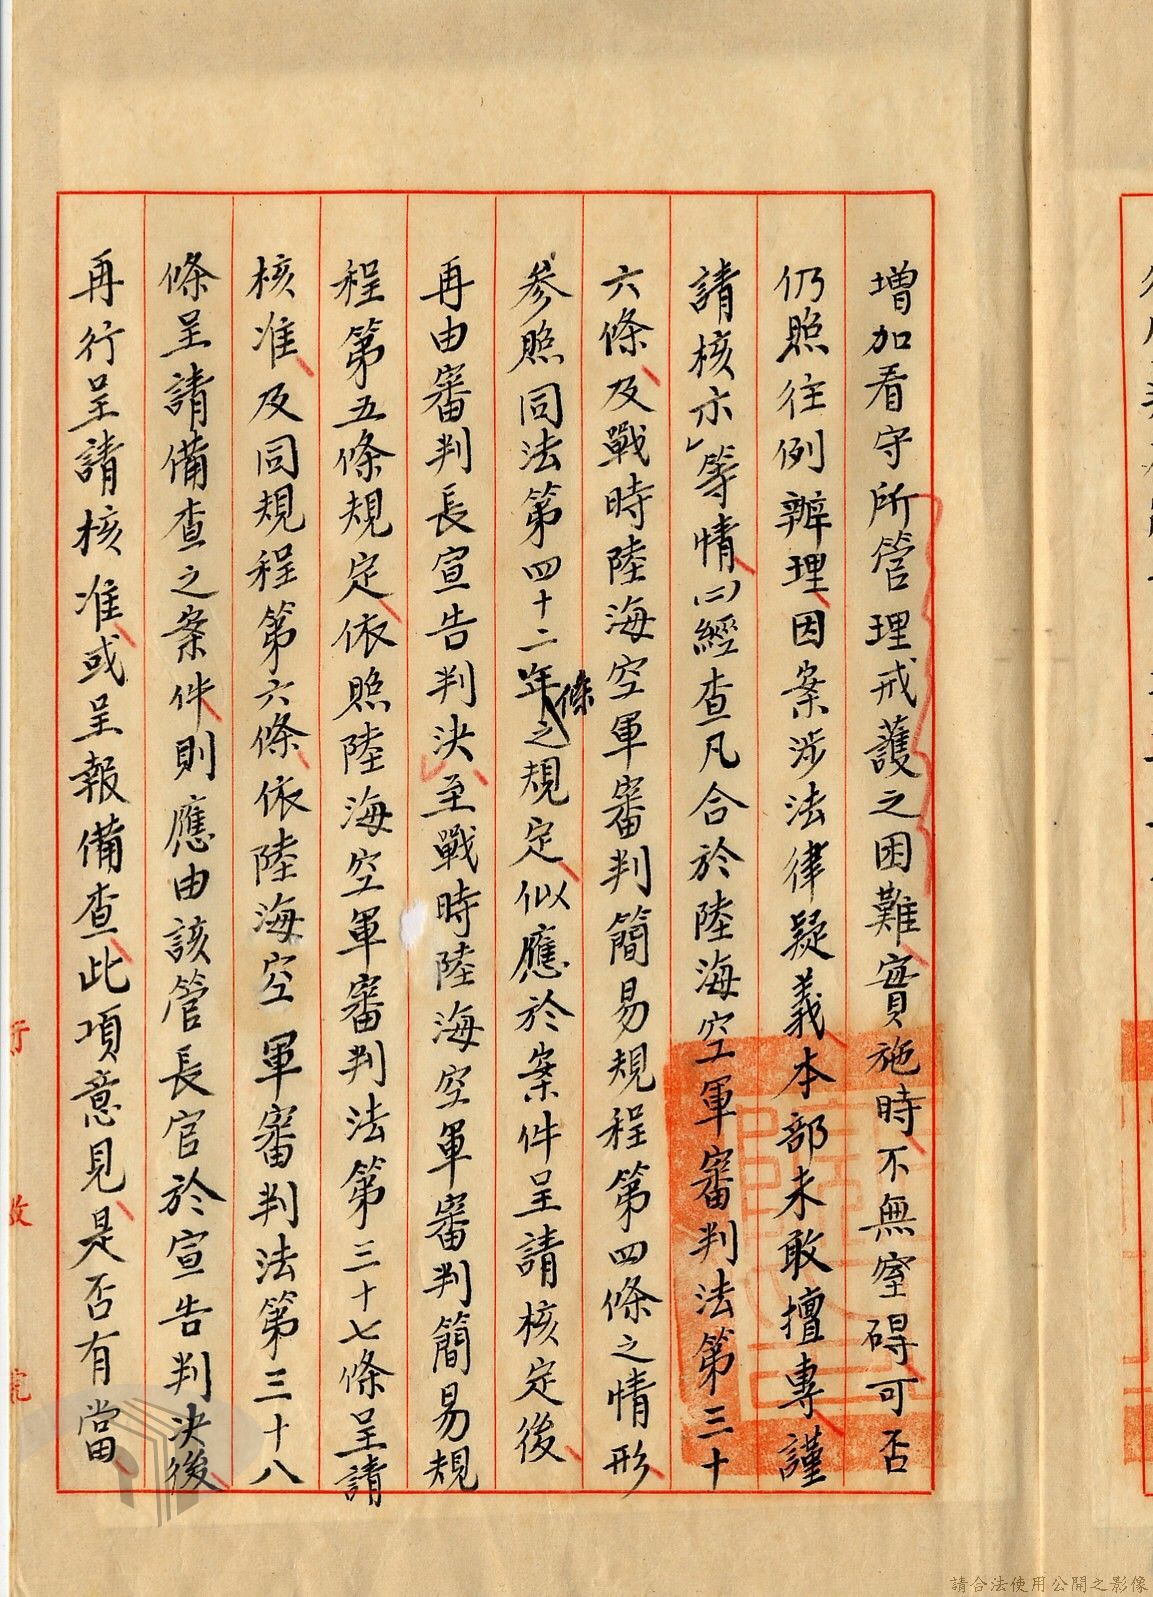 增加看守所管理戒護之困難實施時不無窒碍可否
仍照往例辦理因案涉法律疑義本部未敢擅專謹
請核示」等情(二)經查凡合於陸海空軍審判法第三十
六條及戰時陸海空軍審判簡易規程第四條之情形
參照同法第四十二條之規定似應於案件呈請核定後
再由審判長宣告判決至戰時陸海空軍審判簡易規
程第五條規定依照陸海空軍審判法第三十七條呈請
核准及同規程第六條依陸海空軍審判法第三十八
條呈請備查之案件則應由該管長官於宣告判決後
再行呈請核准或呈報備查此項意見是否有當
行政院
請合法使用公開之影像